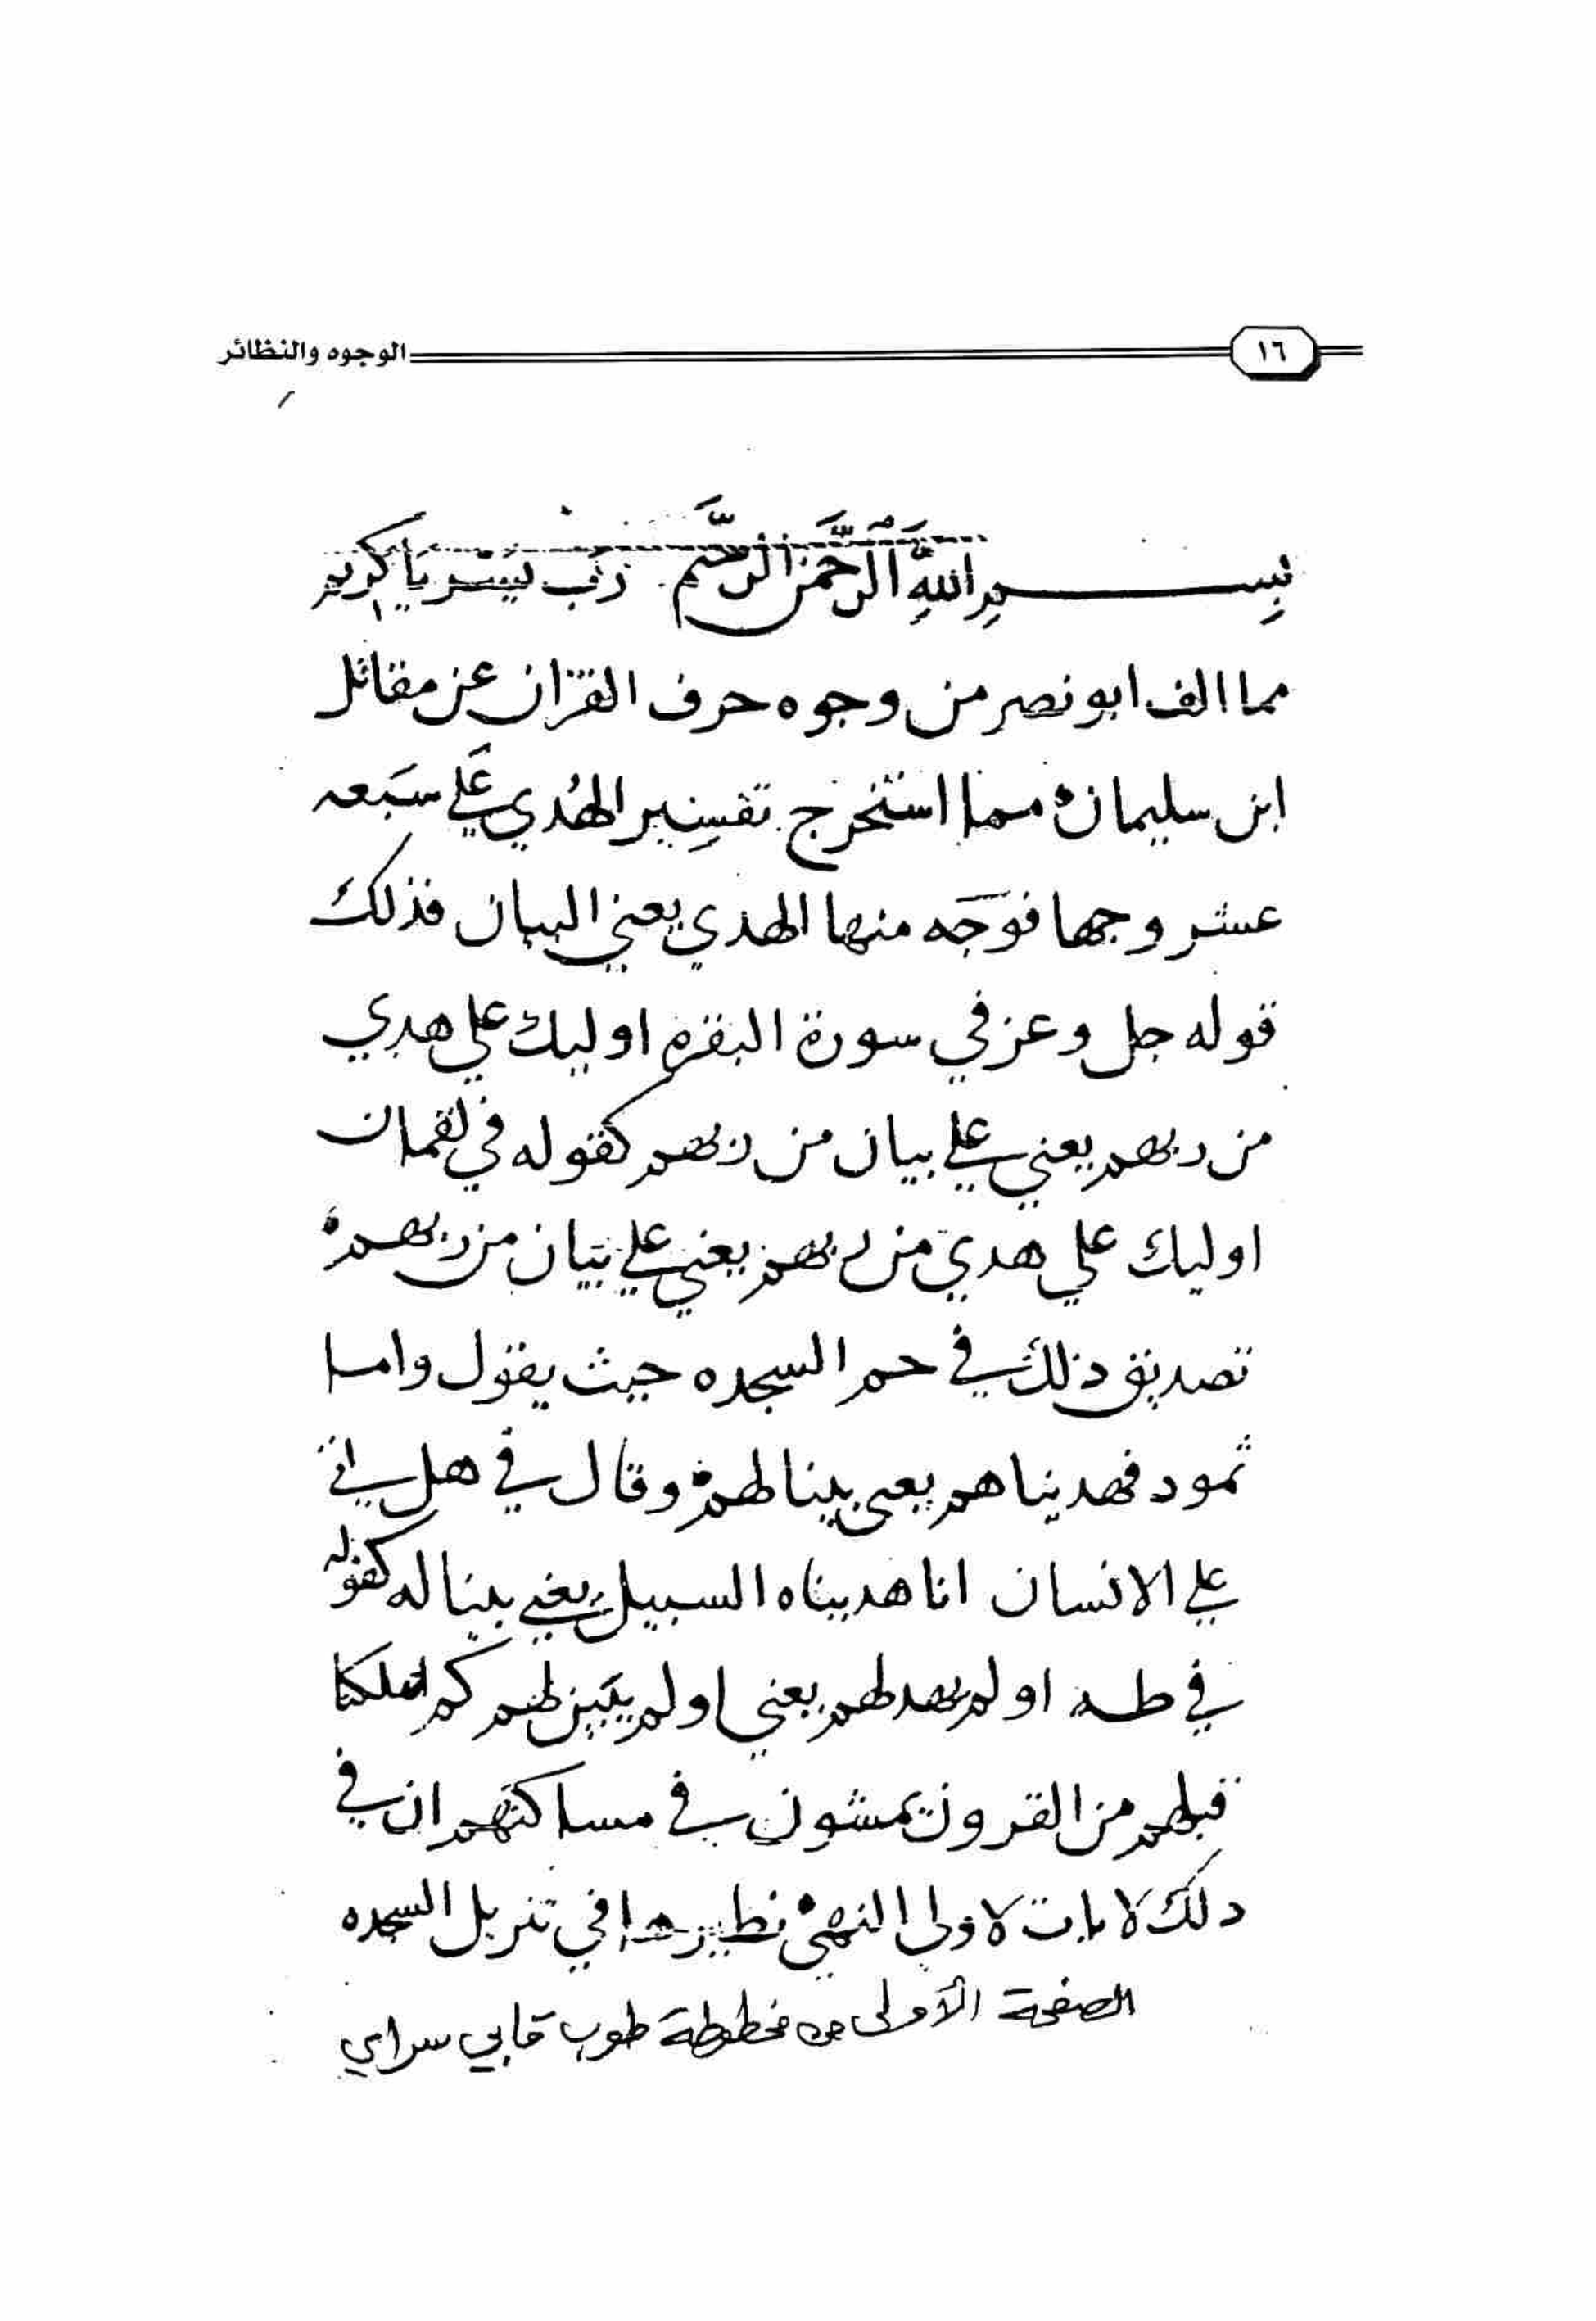 ١٦ الوجوه والنظائر
بِســـم اللهِ الرَّحمَن الرَّحيم رَب يَسّر يَا كَرِيم
مما الف ابو نصر من وجوه حرف القران عن مقاتل
ابن سليمان مما استخرج تفسِير الهُدي عَلي سَبعه
عشر وجها فوَجَه منها الهدي يعني البيان فذلك
قوله جل وعز في سورة البقره اوليك علي هدي
من ربهم يعني علي بيان من ربهم كقوله في لقمان
اوليك علي هدي من ربهم يعني علي بيَان من ربهم
تصديق ذلك في حم السجده حيث يقول واما
ثمود فهديناهم يعى بينا لهم وقال في هل اتي
علي الانسان انا هديناه السبيل يعني بينا له كقوله
في طه اولم يهد لهم يعني اولم يبَين لهم كم اهلكنا
قبلهم من القرون يمشون في مساكنهم ان في
دلك لايات لاولى النهي نظيرها في تنزيل السجده
الصفحة الأولى من مخطوطة طوب قابي سراي